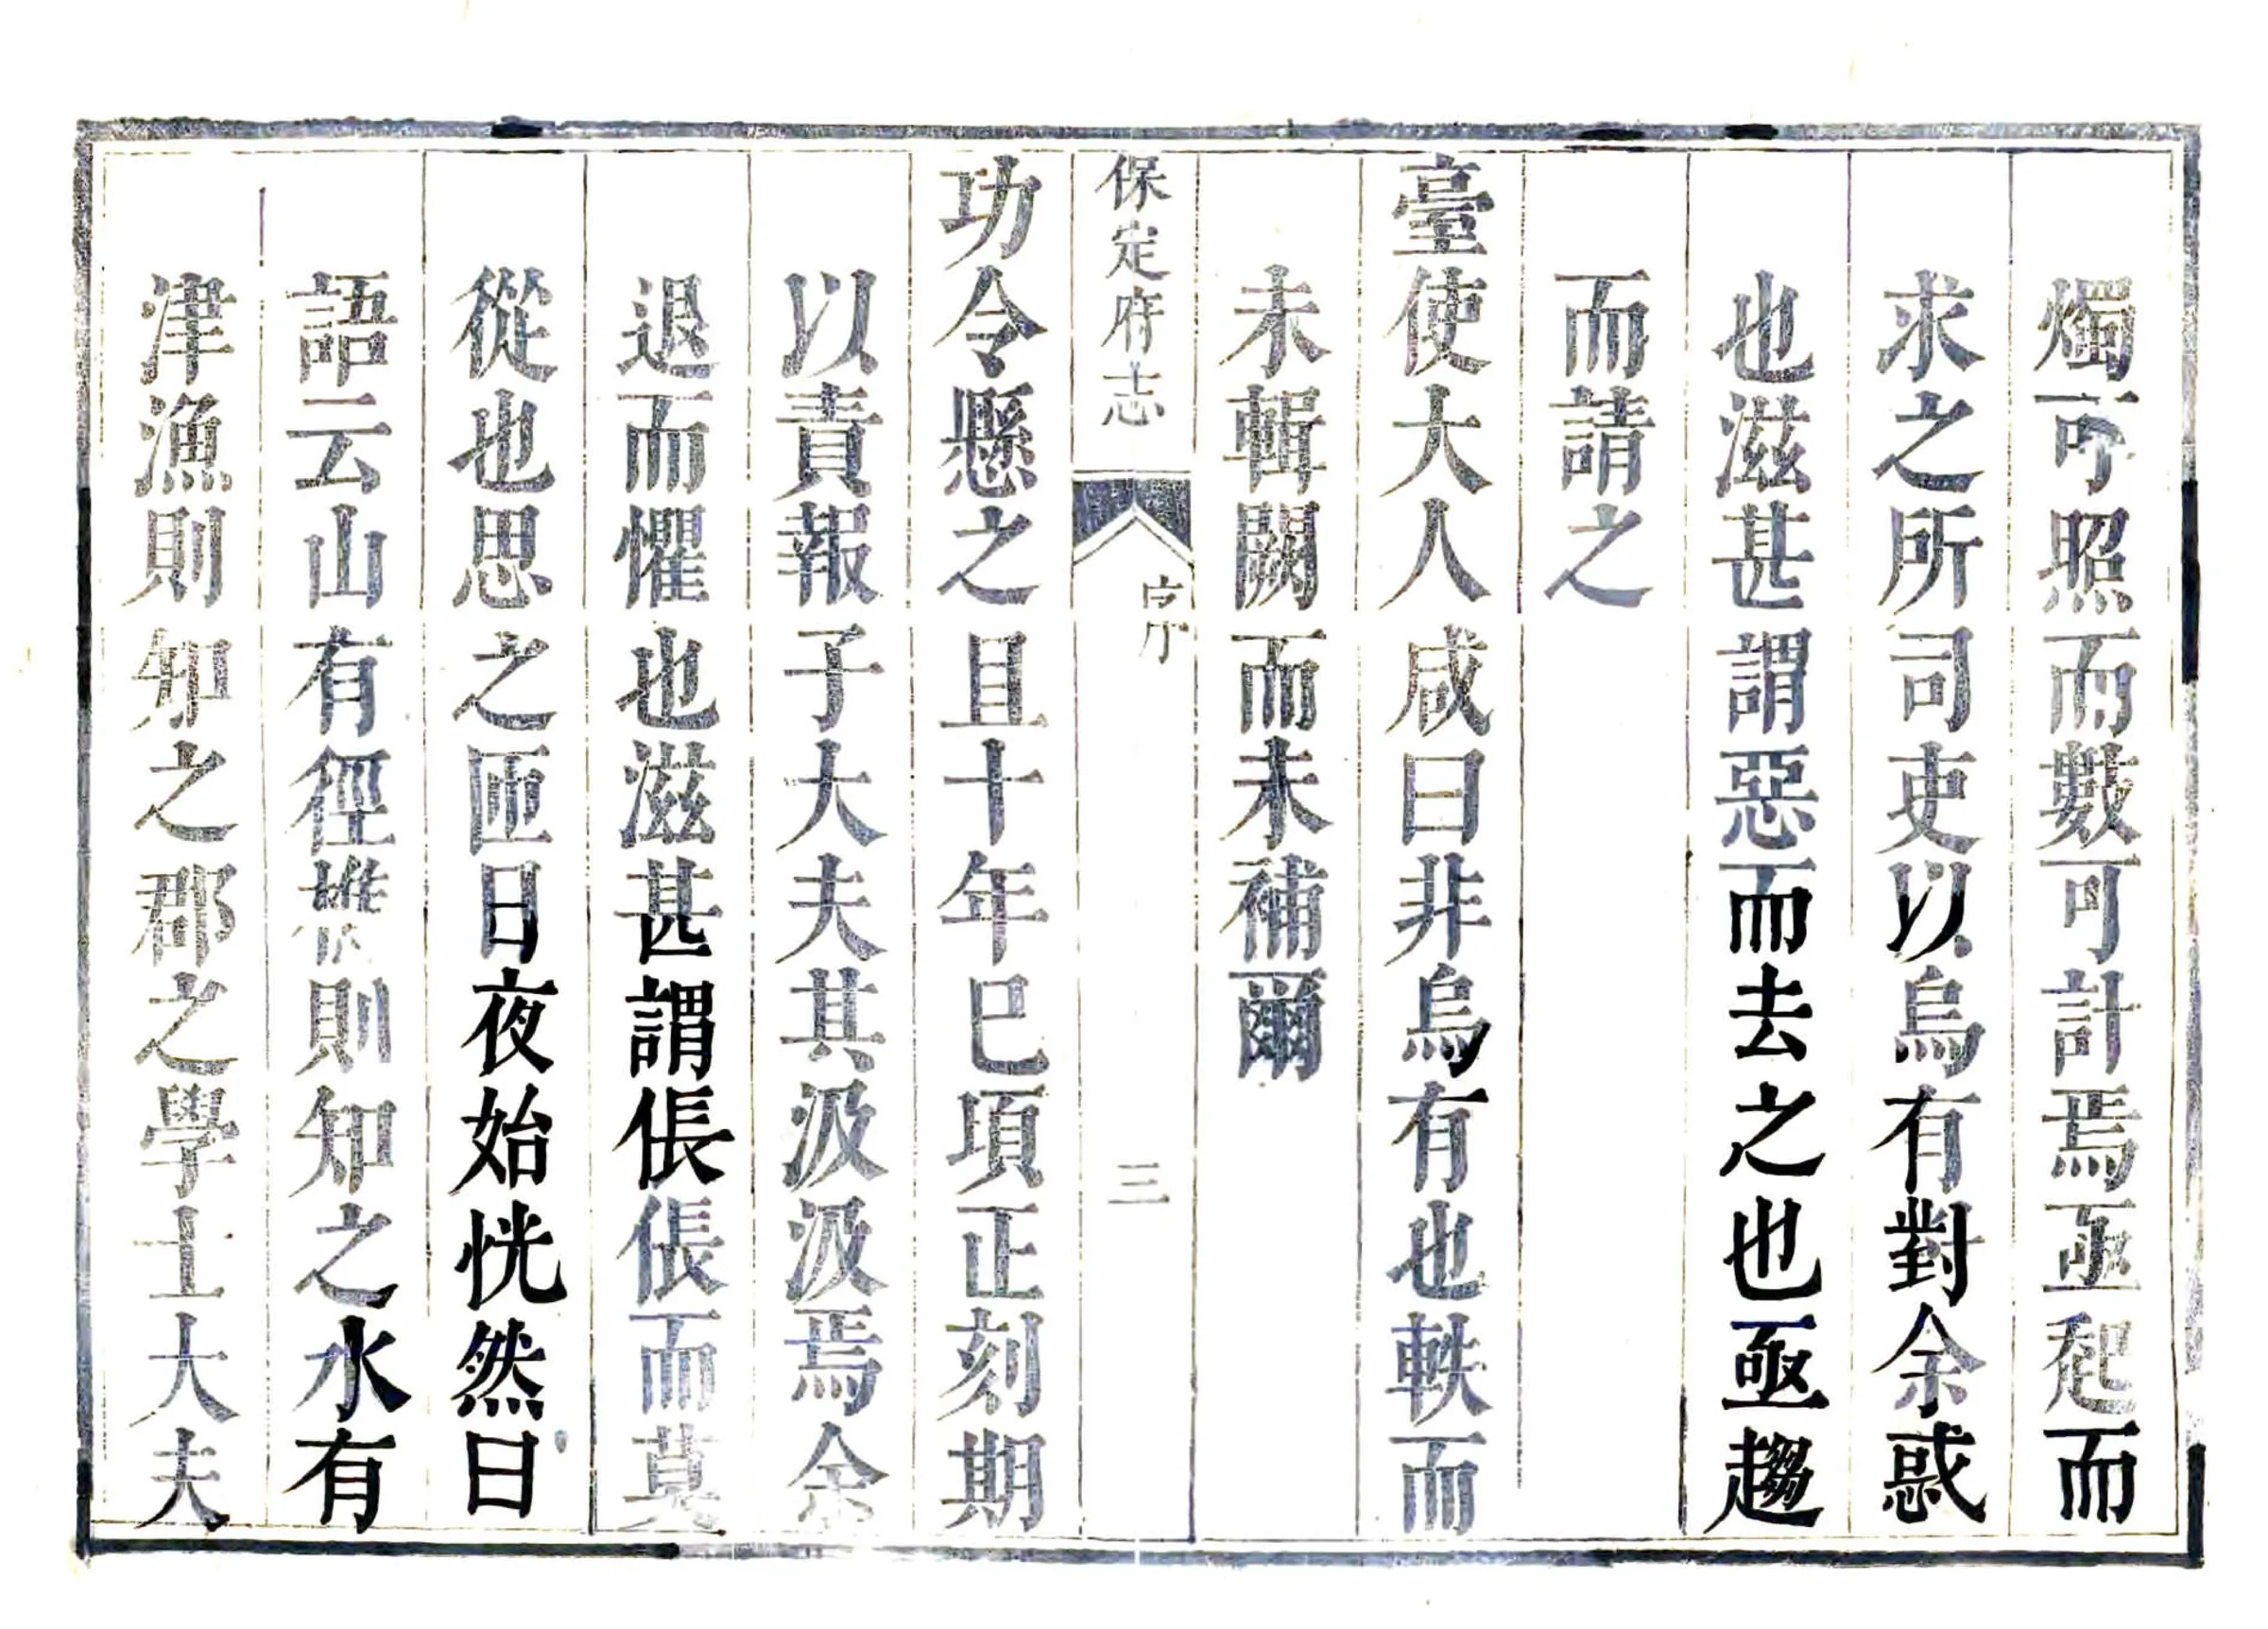 燭可照而數可計焉亟起而
求之所司吏以烏有對余惑
也滋甚謂惡而去之也亟趨
而請之
臺使大人咸曰非烏有也軼而
未輯闕而未補爾
保定府志
序
三
功令懸之且十年巳項正刻期
以責報子大夫其汲汲焉余
退而懼也滋甚謂倀倀而莫
從也思之匝日夜始恍然曰
語云山有徑樵則知之水有
津漁則知之郡之學士大夫